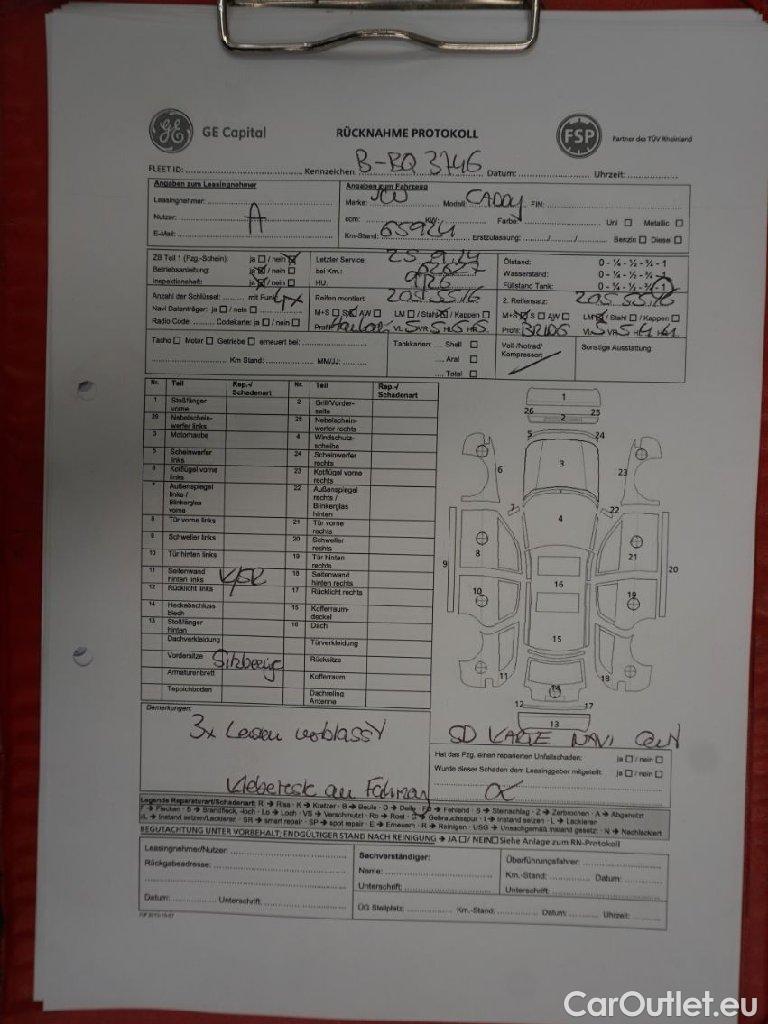 GE Capital RÜCKNAHME PROTOKOLL FSP Partner des TÜV Rheinland
FLEET ID: Kennzeichen: B-BQ 3746 Datum: Uhrzeit:
Angaben zum Leasingnehmer
Leasingnehmer:
Nutzer: A
E-Mail:
Angaben zum Fahrzeug
Marke: VW Modell: CADDY FIN:
ccm: KW: Farbe: Uni Metallic
Km-Stand: 65924 Erstzulassung: Benzin Diesel
ZB Teil 1 (Fzg.-Schein): ja / nein
Betriebsanleitung: ja / nein
Inspektionsheft: ja / nein
Letzter Service: 25.9.24
bei Km.:
HU: 9/26
Ölstand: 0 - ¼ - ½ - ¾ - 1
Wasserstand: 0 - ¼ - ½ - ¾ - 1
Füllstand Tank: 0 - ¼ - ½ - ¾ - 1
Anzahl der Schlüssel: mit Funk 4x
Navi Datenträger: ja / nein
Radio Code: Codekarte: ja / nein
Reifen montiert 205.55.16
M+S S AW LM / Stahl / Kappen
2. Reifensatz: 205.55.16
M+S S AW LM / Stahl / Kappen
Profil: BRIDG
Tacho Motor Getriebe erneuert bei:
Km Stand: MM/JJ:
Tankkarten: Shell
Aral
Total
Voll-/Notrad/
Kompressor
Sonstige Ausstattung:
Nr. Teil Rep.-/ Schadenart Nr. Teil Rep.-/ Schadenart
1 Stoßfänger vorne 2 Grill/Vorderseite
26 Nebelscheinwerfer links 25 Nebelscheinwerfer rechts
3 Motorhaube 4 Windschutzscheibe
5 Scheinwerfer links 24 Scheinwerfer rechts
6 Kotflügel vorne links 23 Kotflügel vorne rechts
7 Außenspiegel links / Blinkerglas vorne 22 Außenspiegel rechts / Blinkerglas hinten
8 Tür vorne links 21 Tür vorne rechts
9 Schweller links 20 Schweller rechts
10 Tür hinten links 19 Tür hinten rechts
11 Seitenwand hinten links 18 Seitenwand hinten rechts
12 Rücklicht links 17 Rücklicht rechts
14 Heckabschluss Blech 15 Kofferraumdeckel
13 Stoßfänger hinten 16 Dach
Dachverkleidung Türverkleidung
Vordersitze Rücksitze
Armaturenbrett Kofferraum
Teppichboden Dachreling Antenne
1
26 2 25
5 24
3
6 23
7 22
4
8 21
9 20
10 16 19
15
11 18
14
12 17
13
Bemerkungen:
3x Leisen verblasst
SD KARTE NAVI
Hat das Fzg. einen reparierten Unfallschaden: ja / nein
Wurde dieser Schaden dem Leasinggeber mitgeteilt: ja / nein
Klebereste an
Legende Reparaturart/Schadenart: R → Riss - K → Kratzer - B → Beule - D → Delle - → Fehlend - S → Steinschlag - Z → Zerbrochen - A → Abgenutzt
BEGUTACHTUNG UNTER VORBEHALT; ENDGÜLTIGER STAND NACH REINIGUNG → JA / NEIN Siehe Anlage zum RN-Protokoll
Leasingnehmer/Nutzer:
Rückgabeadresse:
Datum: Unterschrift:
Sachverständiger:
Name:
Unterschrift:
Überführungsfahrer:
Km.-Stand: Datum:
Unterschrift:
ÜG Stellplatz: Km.-Stand: Datum: Uhrzeit:
CarOutlet.eu